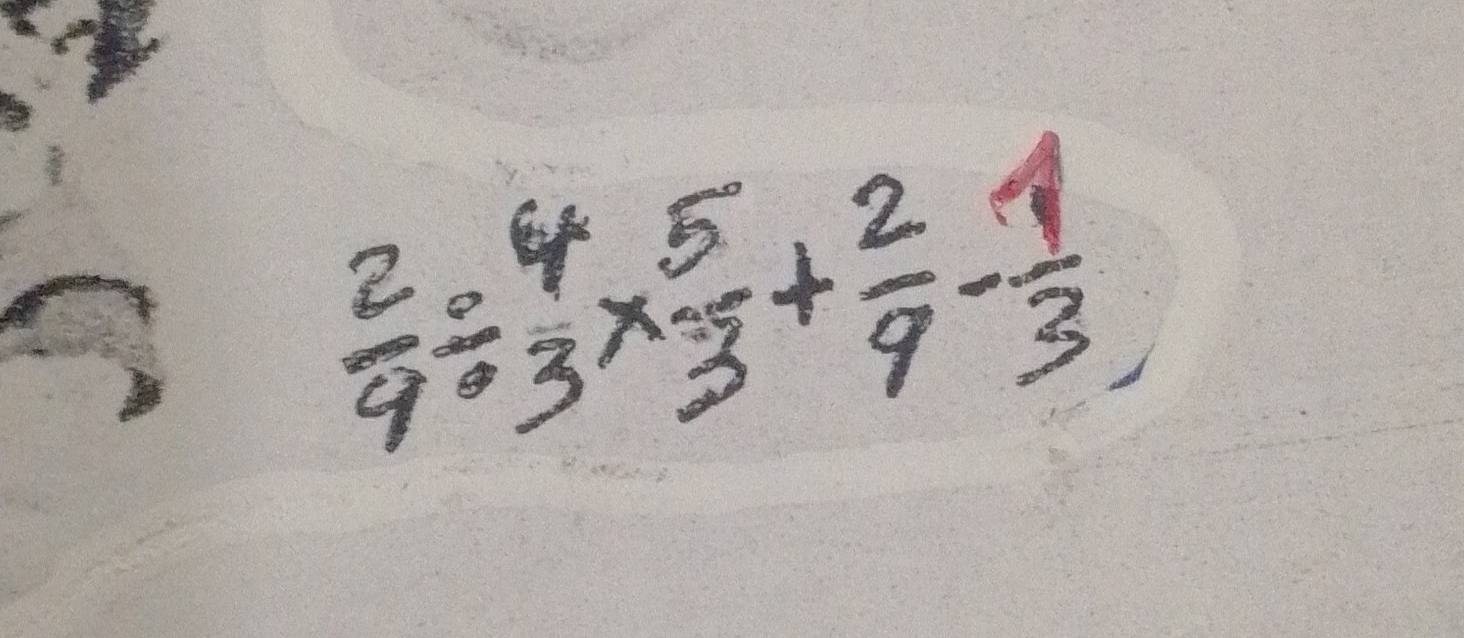 2/9 ÷ 4/3 × 5/3 + 2/9 - 1/3